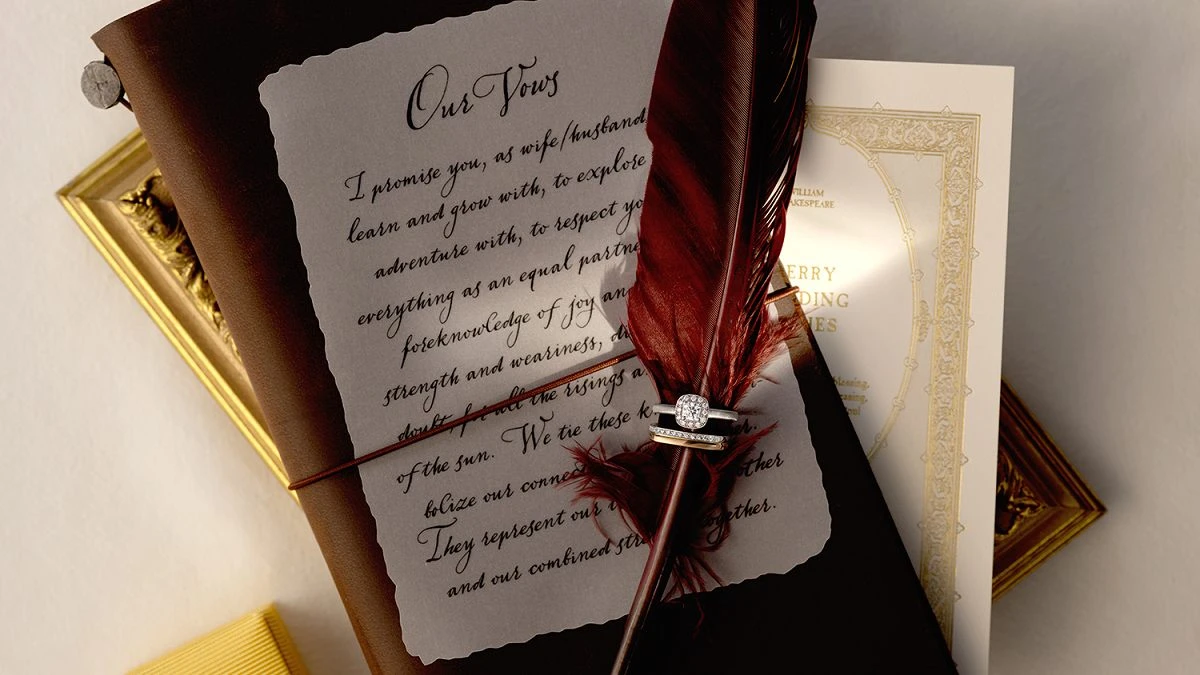 Our Vows
I promise you, as wife/husband
learn and grow with, to explore
adventure with, to respect yo
everything as an equal partne
foreknowledge of joy an
strength and weariness, di
doubt, for all the risings a
of the sun. We tie these k
bolize our connec other
They represent our together.
and our combined stre
WILLIAM
AKESPEARE
ERRY
DING
ES